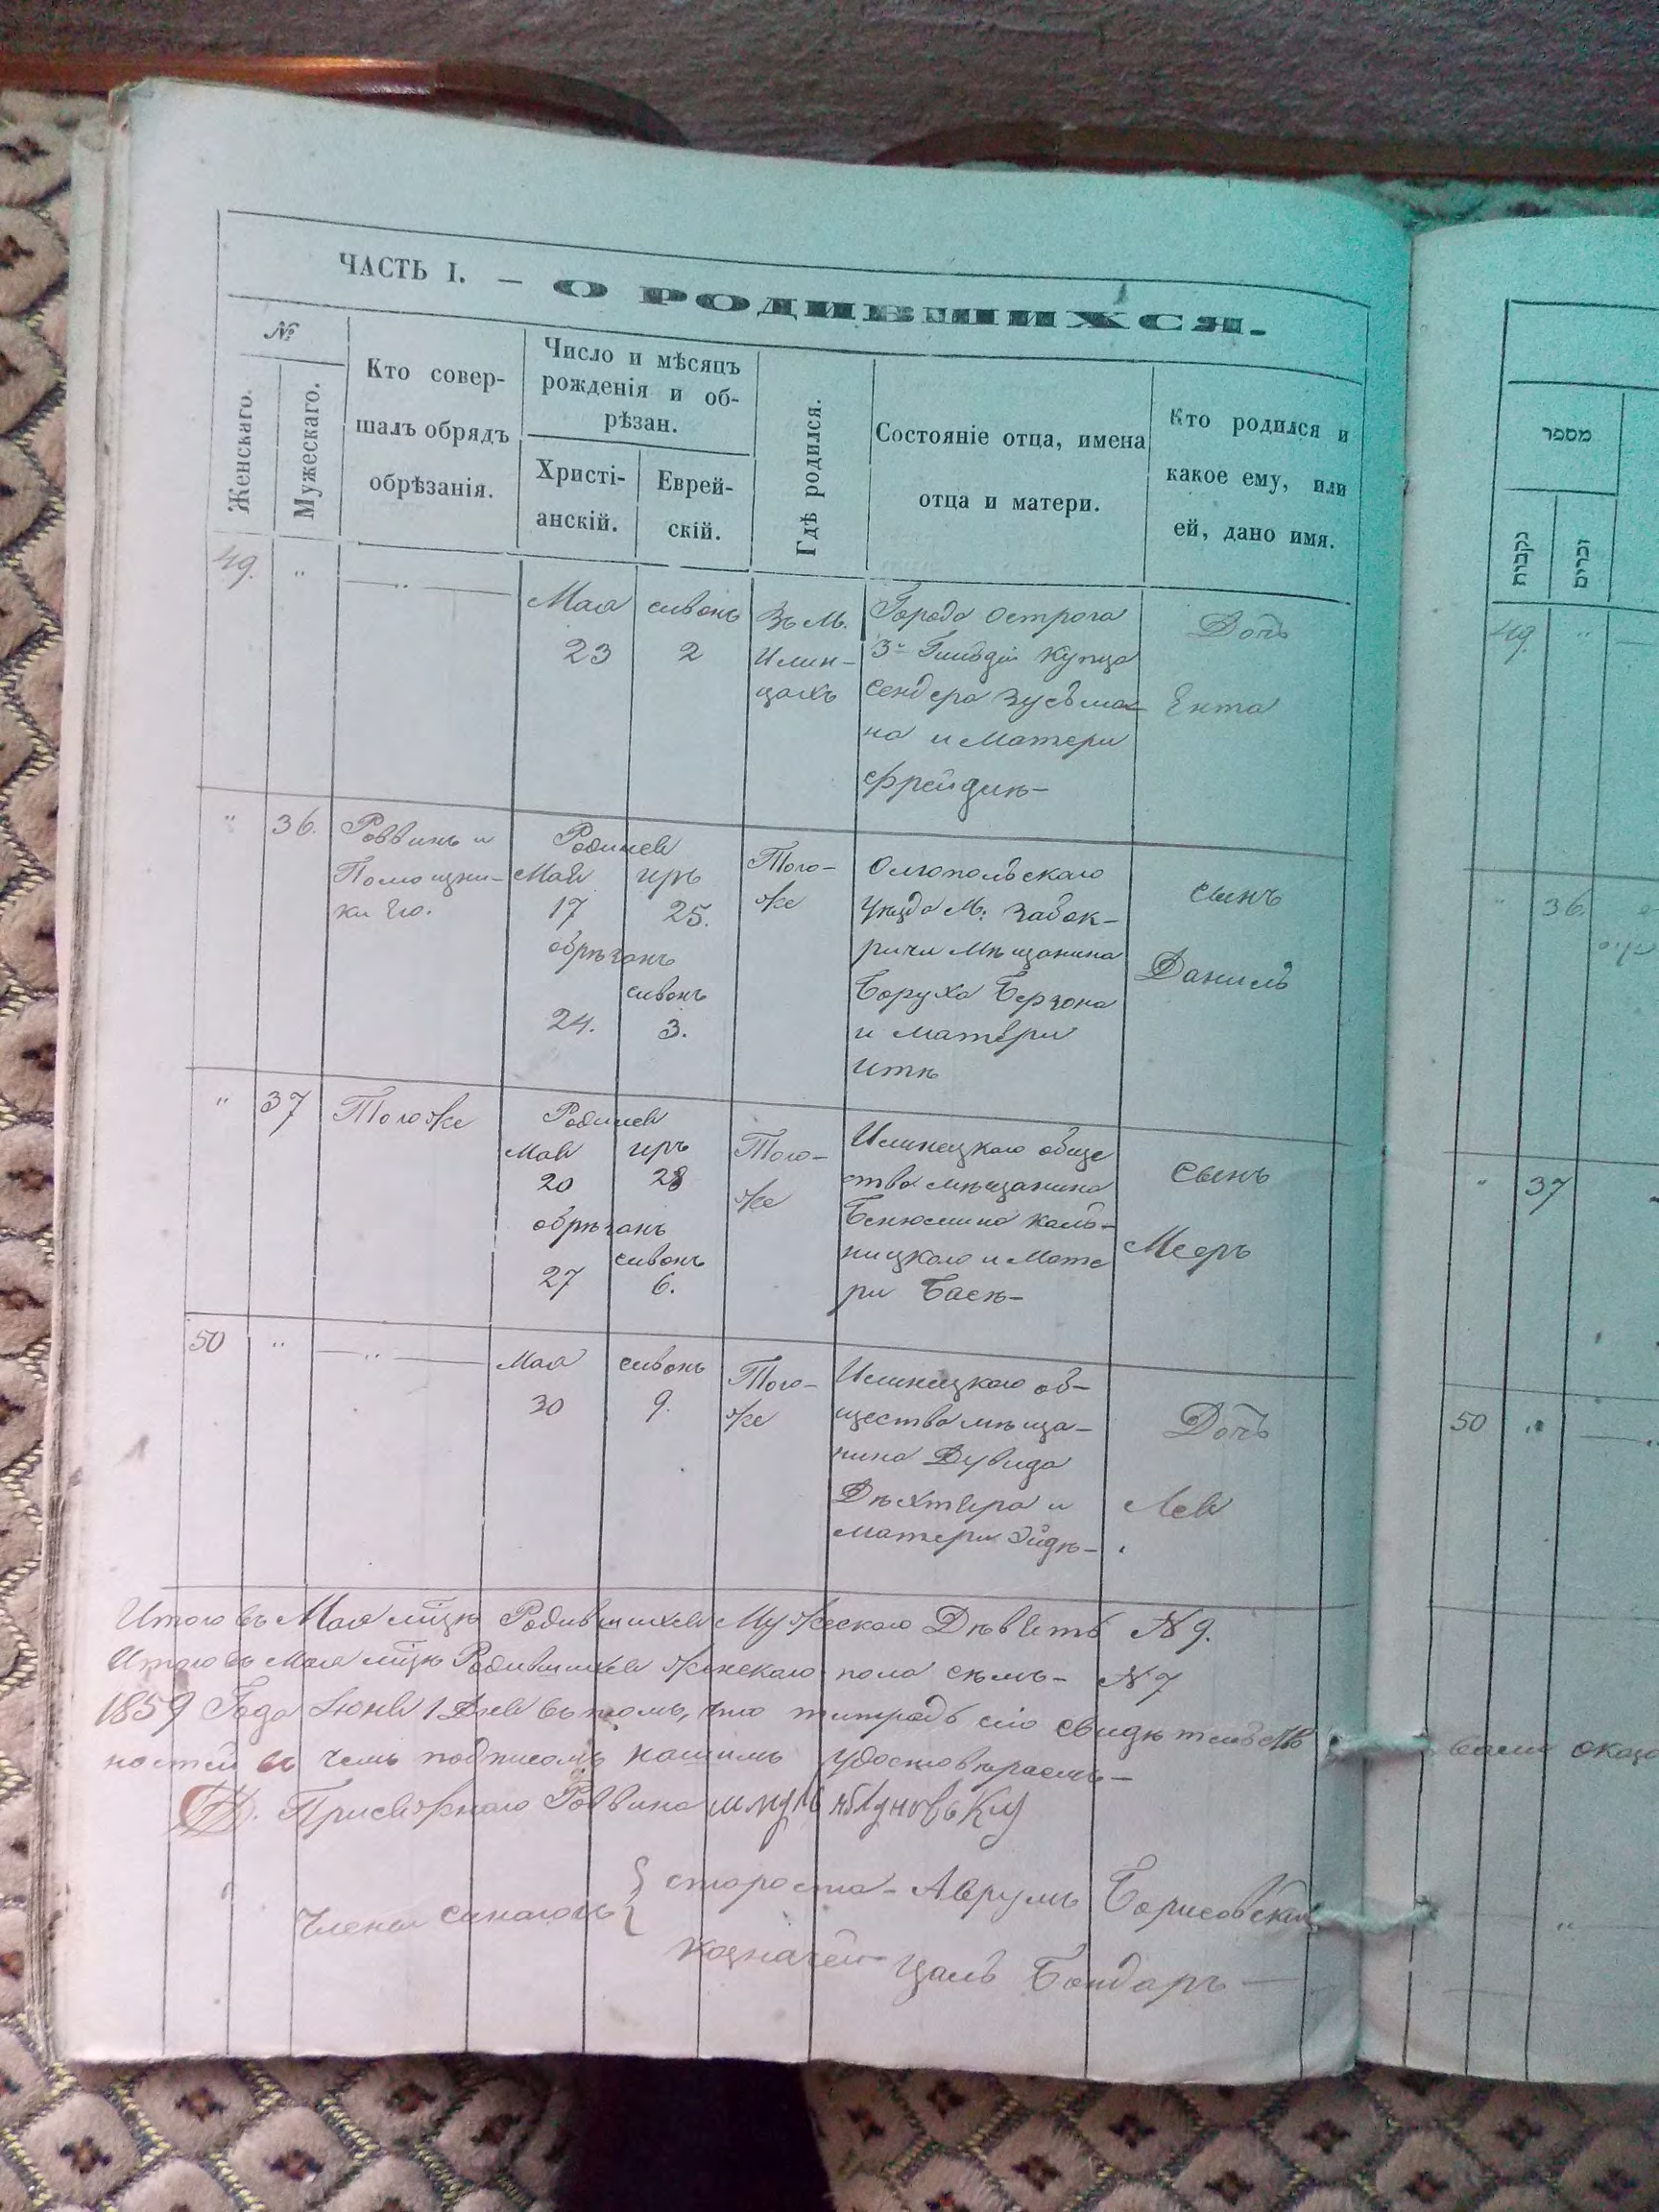 ЧАСТЬ I. — О РОДИВШИХСЯ.
№
Женскаго.
Мужескаго.
Кто совер-
шалъ обрядъ
обрѣзанія.
Число и мѣсяцъ
рожденія и об-
рѣзан.
Христі-
анскій.
Еврей-
скій.
Гдѣ родился.
Состояніе отца, имена
отца и матери.
Кто родился и
какое ему, или
ей, дано имя.
49.
Мая
23
сивонъ
2
Въ М.
Илин-
цахъ
Города Острога
3й Гильдіи Купца
Сендера Зусьма-
на и Матери
Фрейдик-
Дочь
Ента
36.
Роввинъ и
Помощни-
ки Его.
Родился
Мая иръ
17 25.
обрѣзанъ
сивонъ
24. 3.
Того-
же
Олгопольскаго
уѣзда М: Забок-
ричи Мѣщанина
Боруха Берзона
и матери
Иткѣ
Сынъ
Даниль
37
Того же
Родился
Мая иръ
20 28
обрѣзанъ
сивонъ
27 6.
Того-
же
Илинецкаго обще
ства мѣщанина
Бенюмина Каль-
ницкаго и Мате
ри Басѣ-
Сынъ
Мееръ
50
Мая
30
сивонъ
9.
Того-
же
Илинецкаго об-
щества мѣща-
нина Дувида
Дѣхтера и
матери Эйдѣ-
Дочь
Лея
Итого въ Мая мцѣ Родившихся Мужескаго Дѣветь № 9.
Итого въ Мая мцѣ Родившихся женскаго пола сѣмь- № 7
1859 Года Іюня 1 Дня въ томъ, что тетрадь сіо свидѣтельств
ностей въ чемъ подписомъ нашимъ удостовѣраемъ-
Присяжнаго Роввина
Члены синагоги { староста- Аврумъ Борисовский
казначей- Цаль Бондаръ-
מספר
נקבות
זכרים
49.
36.
37
50